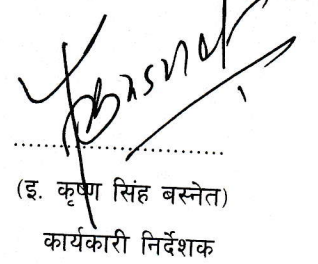 (इ. कृष्ण सिंह बस्नेत)
कार्यकारी निर्देशक